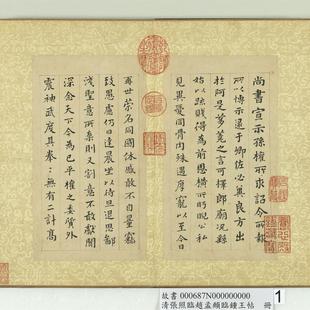 尚書宣示孫權所求詔令所報
所以博示逮于卿佐必冀良方出
於阿是芻蕘之言可擇郎廟況繇
始以疏賤得為前恩橫所盱睨公私
見異愛同骨肉殊遇厚寵以至今日
再世榮名同國休慼敢不自量竊
致愚慮仍日達晨坐以待旦退思鄙
淺聖意所棄則又割意不敢獻聞
深念天下今為已平權之委質外
震神武度其拳〻無有二計高
故書 000687N000000000
清張照臨趙孟頫臨鍾王帖 冊
1